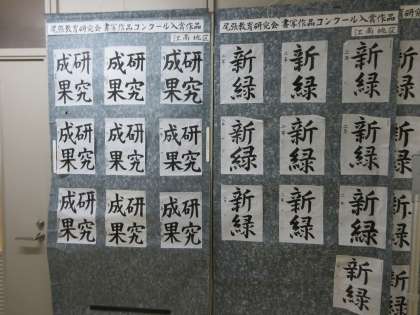 尾張教育研究会 書写作品コンクール入賞作品
江南地区
研究
成果
研究
成果
研究
成果
研究
成果
研究
成果
研究
成果
研究
成果
研究
成果
研究
成果
尾張教育研究会 書写作品コンクール入賞作品
江南地区
新緑
新緑
新緑
新緑
新緑
新緑
新緑
新緑
新緑
新緑